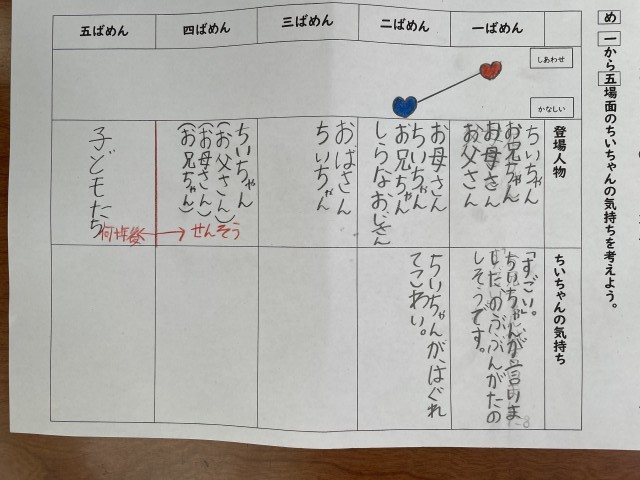 め 一から五場面のちいちゃんの気持ちを考えよう。
一ばめん
二ばめん
三ばめん
四ばめん
五ばめん
しあわせ
かなしい
登場人物
ちいちゃん
お兄ちゃん
お母さん
お父さん
お母さん
ちいちゃん
お兄ちゃん
しらなおじさん
おばさん
ちいちゃん
ちいちゃん
(お父さん)
(お母さん)
(お兄ちゃん)
せんそう
何年後
子どもたち
ちいちゃんの気持ち
「すごい。」
ちいちゃんが言いま
したのぶぶんがたの
しそうです。
ちいちゃんがはぐれ
てこわい。